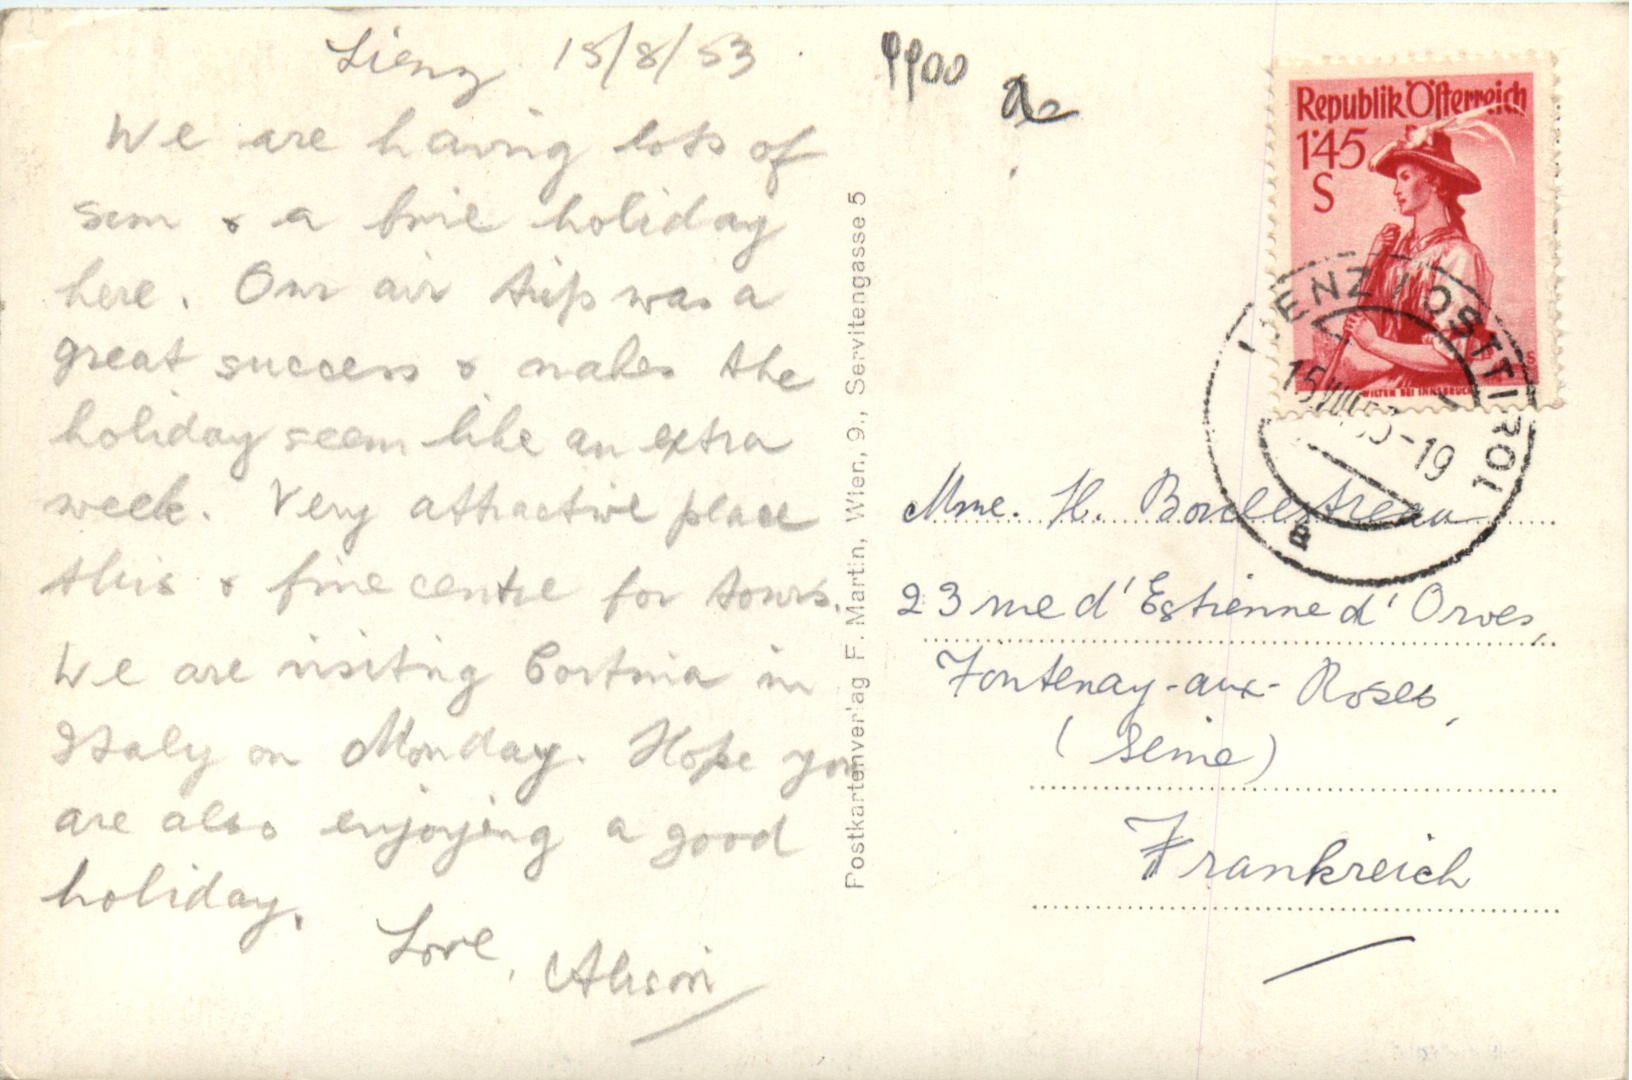 Lienz 15/8/53
We are having lots of
sun & a fine holiday
here. Our air trip was a
great success & makes the
holiday seem like an extra
week. Very attractive place
this & fine centre for tours.
We are visiting Cortina in
Italy on Monday. Hope you
are also enjoying a good
holiday.
Love, Alison
9900
Postkartenverlag F. Martin, Wien, 9., Servitengasse 5
Republik Österreich
1·45
S
WILTEN BEI INNSBRUCK
LIENZ / OSTTIROL
15.VIII.53-19
Mme. H. Bordestreau
23 rue d'Estienne d'Orves,
Fontenay-aux-Roses,
(Seine)
Frankreich